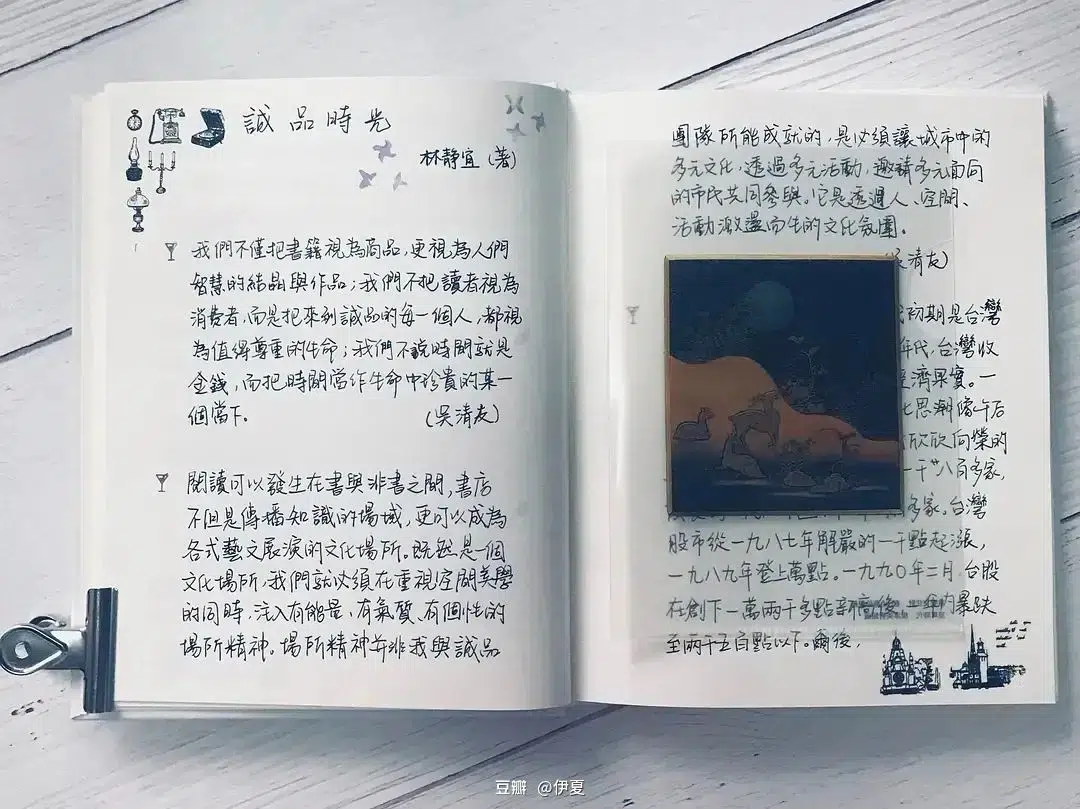 誠品時光
林靜宜（著）
我們不僅把書籍視為商品，更視為人們
智慧的結晶與作品；我們不把讀者視為
消費者，而是把來到誠品的每一個人，都視
為值得尊重的生命；我們不說時間就是
金錢，而把時間當作生命中珍貴的某一
個當下。
（吳清友）
閱讀可以發生在書與非書之間，書店
不但是傳播知識的場域，更可以成為
各式藝文展演的文化場所。既然是一個
文化場所，我們就必須在重視空間美學
的同時，注入有能量、有氣質、有個性的
場所精神。場所精神並非我與誠品
團隊所能成就的，是必須讓城市中的
多元文化，透過多元活動，邀請多元面向
的市民共同參與。它是透過人、空間、
活動激盪而生的文化氛圍。
吳清友）
初期是台灣
年代，台灣收
經濟果實。一
思潮像午后
欣欣向榮的
一千廿八百多家，
多家。台灣
股市從一九八七年解嚴的一千點起漲，
一九八九年登上萬點。一九九〇年二月，台股
在創下一萬兩千多點新高後，內暴跌
至兩千五百點以下。爾後，
豆瓣 @伊夏